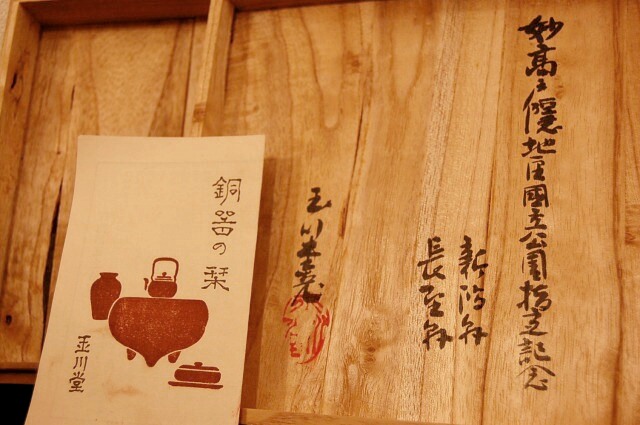 妙高戸隠地区國立公園指定記念
新潟縣
長野縣
玉川堂
銅器の栞
玉川堂